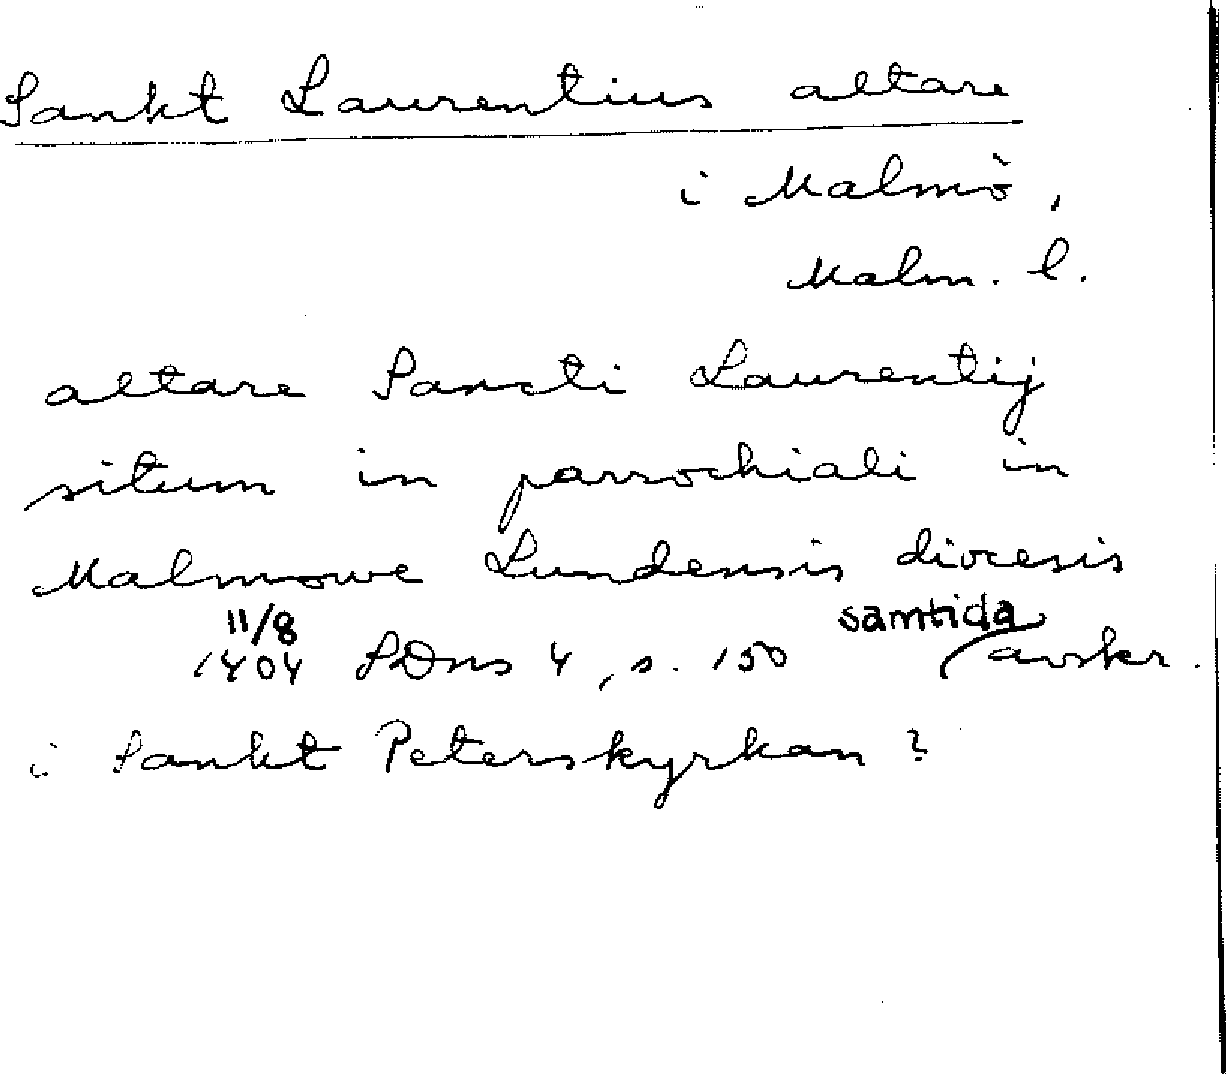 Sankt Laurentius altare
i Malmö,
Malm. l.
altare Sancti Laurentij
situm in parrochiali in
Malmowe Lundensis diocesis
11/8 samtida
1404 SDns 4, s. 150 avskr.
i Sankt Peterskyrkan?